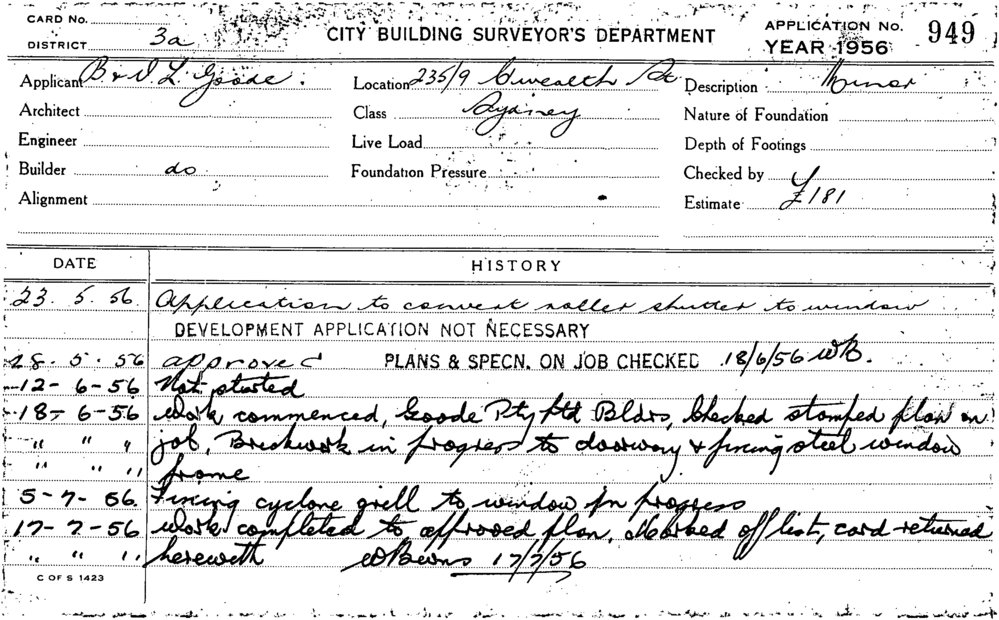 CARD No.
DISTRICT 3a
CITY BUILDING SURVEYOR'S DEPARTMENT
APPLICATION No. 949
YEAR 1956
Applicant B & D L Goode. Location 235/9 C'wealth St Description Minor
Architect Class Sydney Nature of Foundation
Engineer Live Load Depth of Footings
Builder do Foundation Pressure Checked by
Alignment Estimate £181
DATE HISTORY
23. 5. 56 Application to convert roller shutter to window
DEVELOPMENT APPLICATION NOT NECESSARY
28. 5. 56 approved PLANS & SPECN. ON JOB CHECKED 18/6/56 WB.
12- 6-56 Not started
18- 6-56 Work commenced, Goode Pty Ltd Bldrs, Checked stamped plan on
" " " job, Brickwork in progress to doorway & fixing steel window
" " " frame
5-7- 56. Fixing cyclone grell to window in progress
17-7-56 Work completed to approved plan. Marked off list, card returned
" " " herewith 17/7/56
C OF S 1423